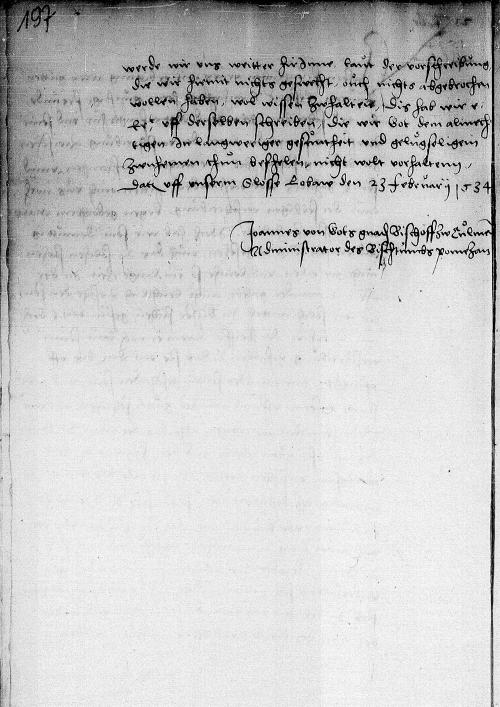 197
werde wir uns weitter hirInne laut der vorschreibung
die wir hiemit nichts geswecht ouch nichts abgebrochen
wollen haben, wol wissen zuvorhalten, Dis hab wir
uff derselben schreiben, die wir Got dem almech
tigen In langweriger gesuntheit und gelugseligem
zunhemen thun befhelen, nicht wolt vorhaltenn,
Dat uff unserm Slosse Lobaw den 23 februarij 1534
Joannes von Gots gnad Bischoff zw Culmen
Administrator des Bischtumbs pomezan